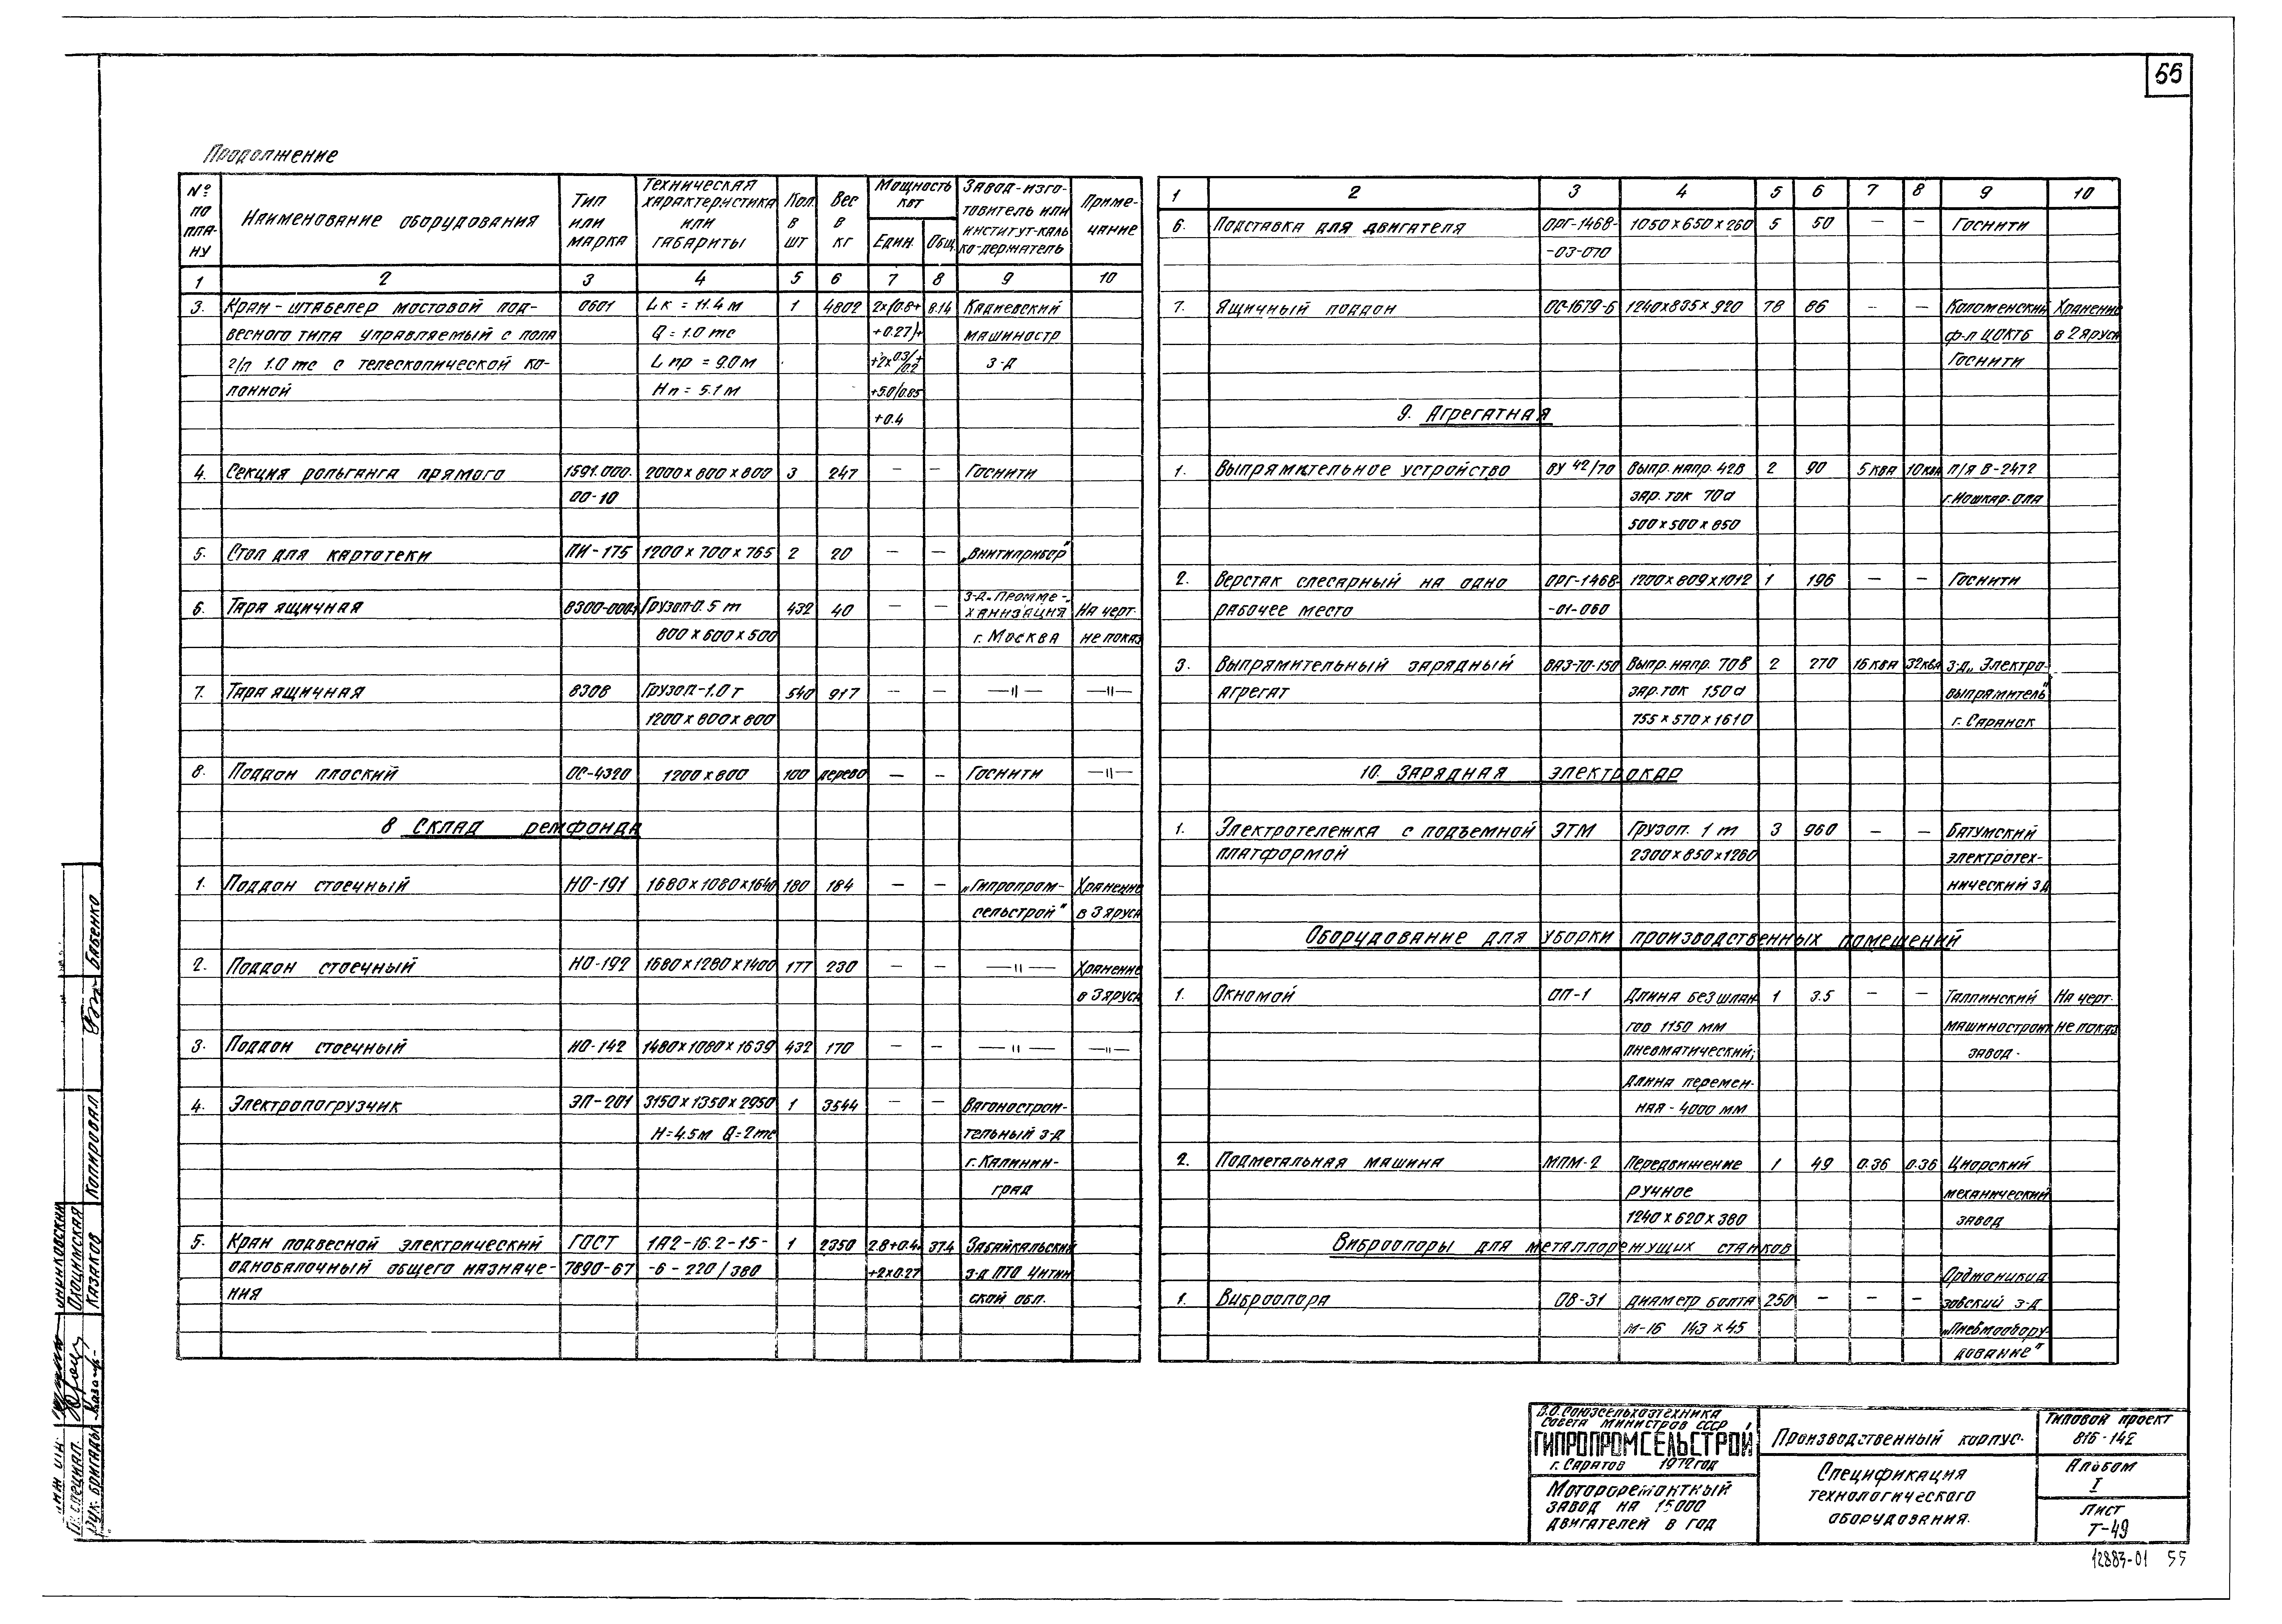 55
Продолжение
№ по плану | Наименование оборудования | Тип или марка | Техническая характеристика или габариты | Кол. в шт | Вес в кг | Мощность квт Един. Общ. | Завод-изготовитель или институт-калько-держатель | Примечание
1 2 3 4 5 6 7 8 9 10
3. Кран-штабелер мостовой под- 0601 Lк = 11.4 м 1 4802 2х(0.8+ 8.14 Кадиевский
весного типа управляемый с пола Q = 1.0 тс +0.27)+ машиностр
г/п 1.0 тс с телескопической ко- L пр = 9.0 м +2х0.3/0.2+ з-д
лонной Нп = 5.1 м +5.0/0.85
+0.4
4. Секция рольганга прямого 1591.000. 2000 х 800 х 800 3 247 — — Госнити
00-10
5. Стол для картотеки ПИ-175 1200 х 700 х 765 2 20 — — „Внитиприбор"
6. Тара ящичная 8300-000 Грузоп-0.5 т 432 40 — — з-д „Промме-
ханизация На черт.
800 х 600 х 500 г. Москва не показ
7. Тара ящичная 8308 Грузоп-1.0 т 540 917 — — —〃— —〃—
1200 х 800 х 800
8. Поддон плоский ОС-4320 1200 х 800 100 дерево — — Госнити —〃—
8 Склад ремфонда
1. Поддон стоечный НО-191 1680х1080х1640 180 184 — — „Гипропром- Хранение
сельстрой" в 3 яруса
2. Поддон стоечный НО-192 1680х1280х1400 177 230 — — —〃— Хранение
в 3 яруса
3. Поддон стоечный НО-142 1480х1080х1639 432 170 — — —〃— —〃—
4. Электропогрузчик ЭП-201 3150х1350х2950 1 3544 — — Вагонострои-
Н=4.5м Q=2тс тельный з-д
г. Калинин-
град
5. Кран подвесной электрический ГОСТ 1А2-16.2-15- 1 2350 2.8+0.4+ 3.74 Забайкальский
однобалочный общего назначе- 7890-67 -6-220/380 +2х0.27 з-д ПТО Читин
ния ской обл.
1 2 3 4 5 6 7 8 9 10
6. Подставка для двигателя ОРГ-1468- 1050 х 650 х 260 5 50 — — Госнити
-03-070
7. Ящичный поддон ОС-1679-Б 1240х835х920 78 86 — — Коломенский Хранение
ф-л ЦОКТБ в 2 яруса
Госнити
9. Агрегатная
1. Выпрямительное устройство ВУ 42/70 Выпр. напр. 42В 2 90 5 ква 10 ква п/я В-2472
зар. ток 70а г. Йошкар-Ола
500 х 500 х 850
2. Верстак слесарный на одно ОРГ-1468- 1200х809х1012 1 196 — — Госнити
рабочее место -01-060
3. Выпрямительный зарядный ВАЗ-70-150 Выпр. напр. 70В 2 270 16 ква 32 ква з-д „Электро-
агрегат зар. ток 150а выпрямитель"
755 х 570 х 1610 г. Саранск
10. Зарядная электрокар
1. Электротележка с подъемной ЭТМ Грузоп. 1 т 3 960 — — Батумский
платформой 2300 х 850 х 1260 электротех-
нический з-д
Оборудование для уборки производственных помещений
1. Окномой ОП-1 Длина без шлан 1 3.5 — — Таллинский На черт.
гов 1150 мм машиностроит. не показ
пневматический; завод.
длина перемен-
ная - 4000 мм
2. Подметальная машина МПМ-2 Передвижение 1 49 0.36 0.36 Цнорский
ручное механический
1240 х 620 х 380 завод
Виброопоры для металлорежущих станков
Орджоникид
1. Виброопора ОВ-31 диаметр болта 250 — — — зовский з-д
М-16 143 х 45 „Пневмообору-
дование"
В.О. Союзсельхозтехника
Совета Министров СССР
ГИПРОПРОМСЕЛЬСТРОЙ
г. Саратов 1972 год
Мотороремонтный
завод на 15000
двигателей в год
Производственный корпус.
Спецификация
технологического
оборудования.
Типовой проект
816-142
Альбом
I
Лист
Т-49
12883-01 55
Гл. специал. Охоцимская
Рук. бригады Казаков
Копировал Бабенко